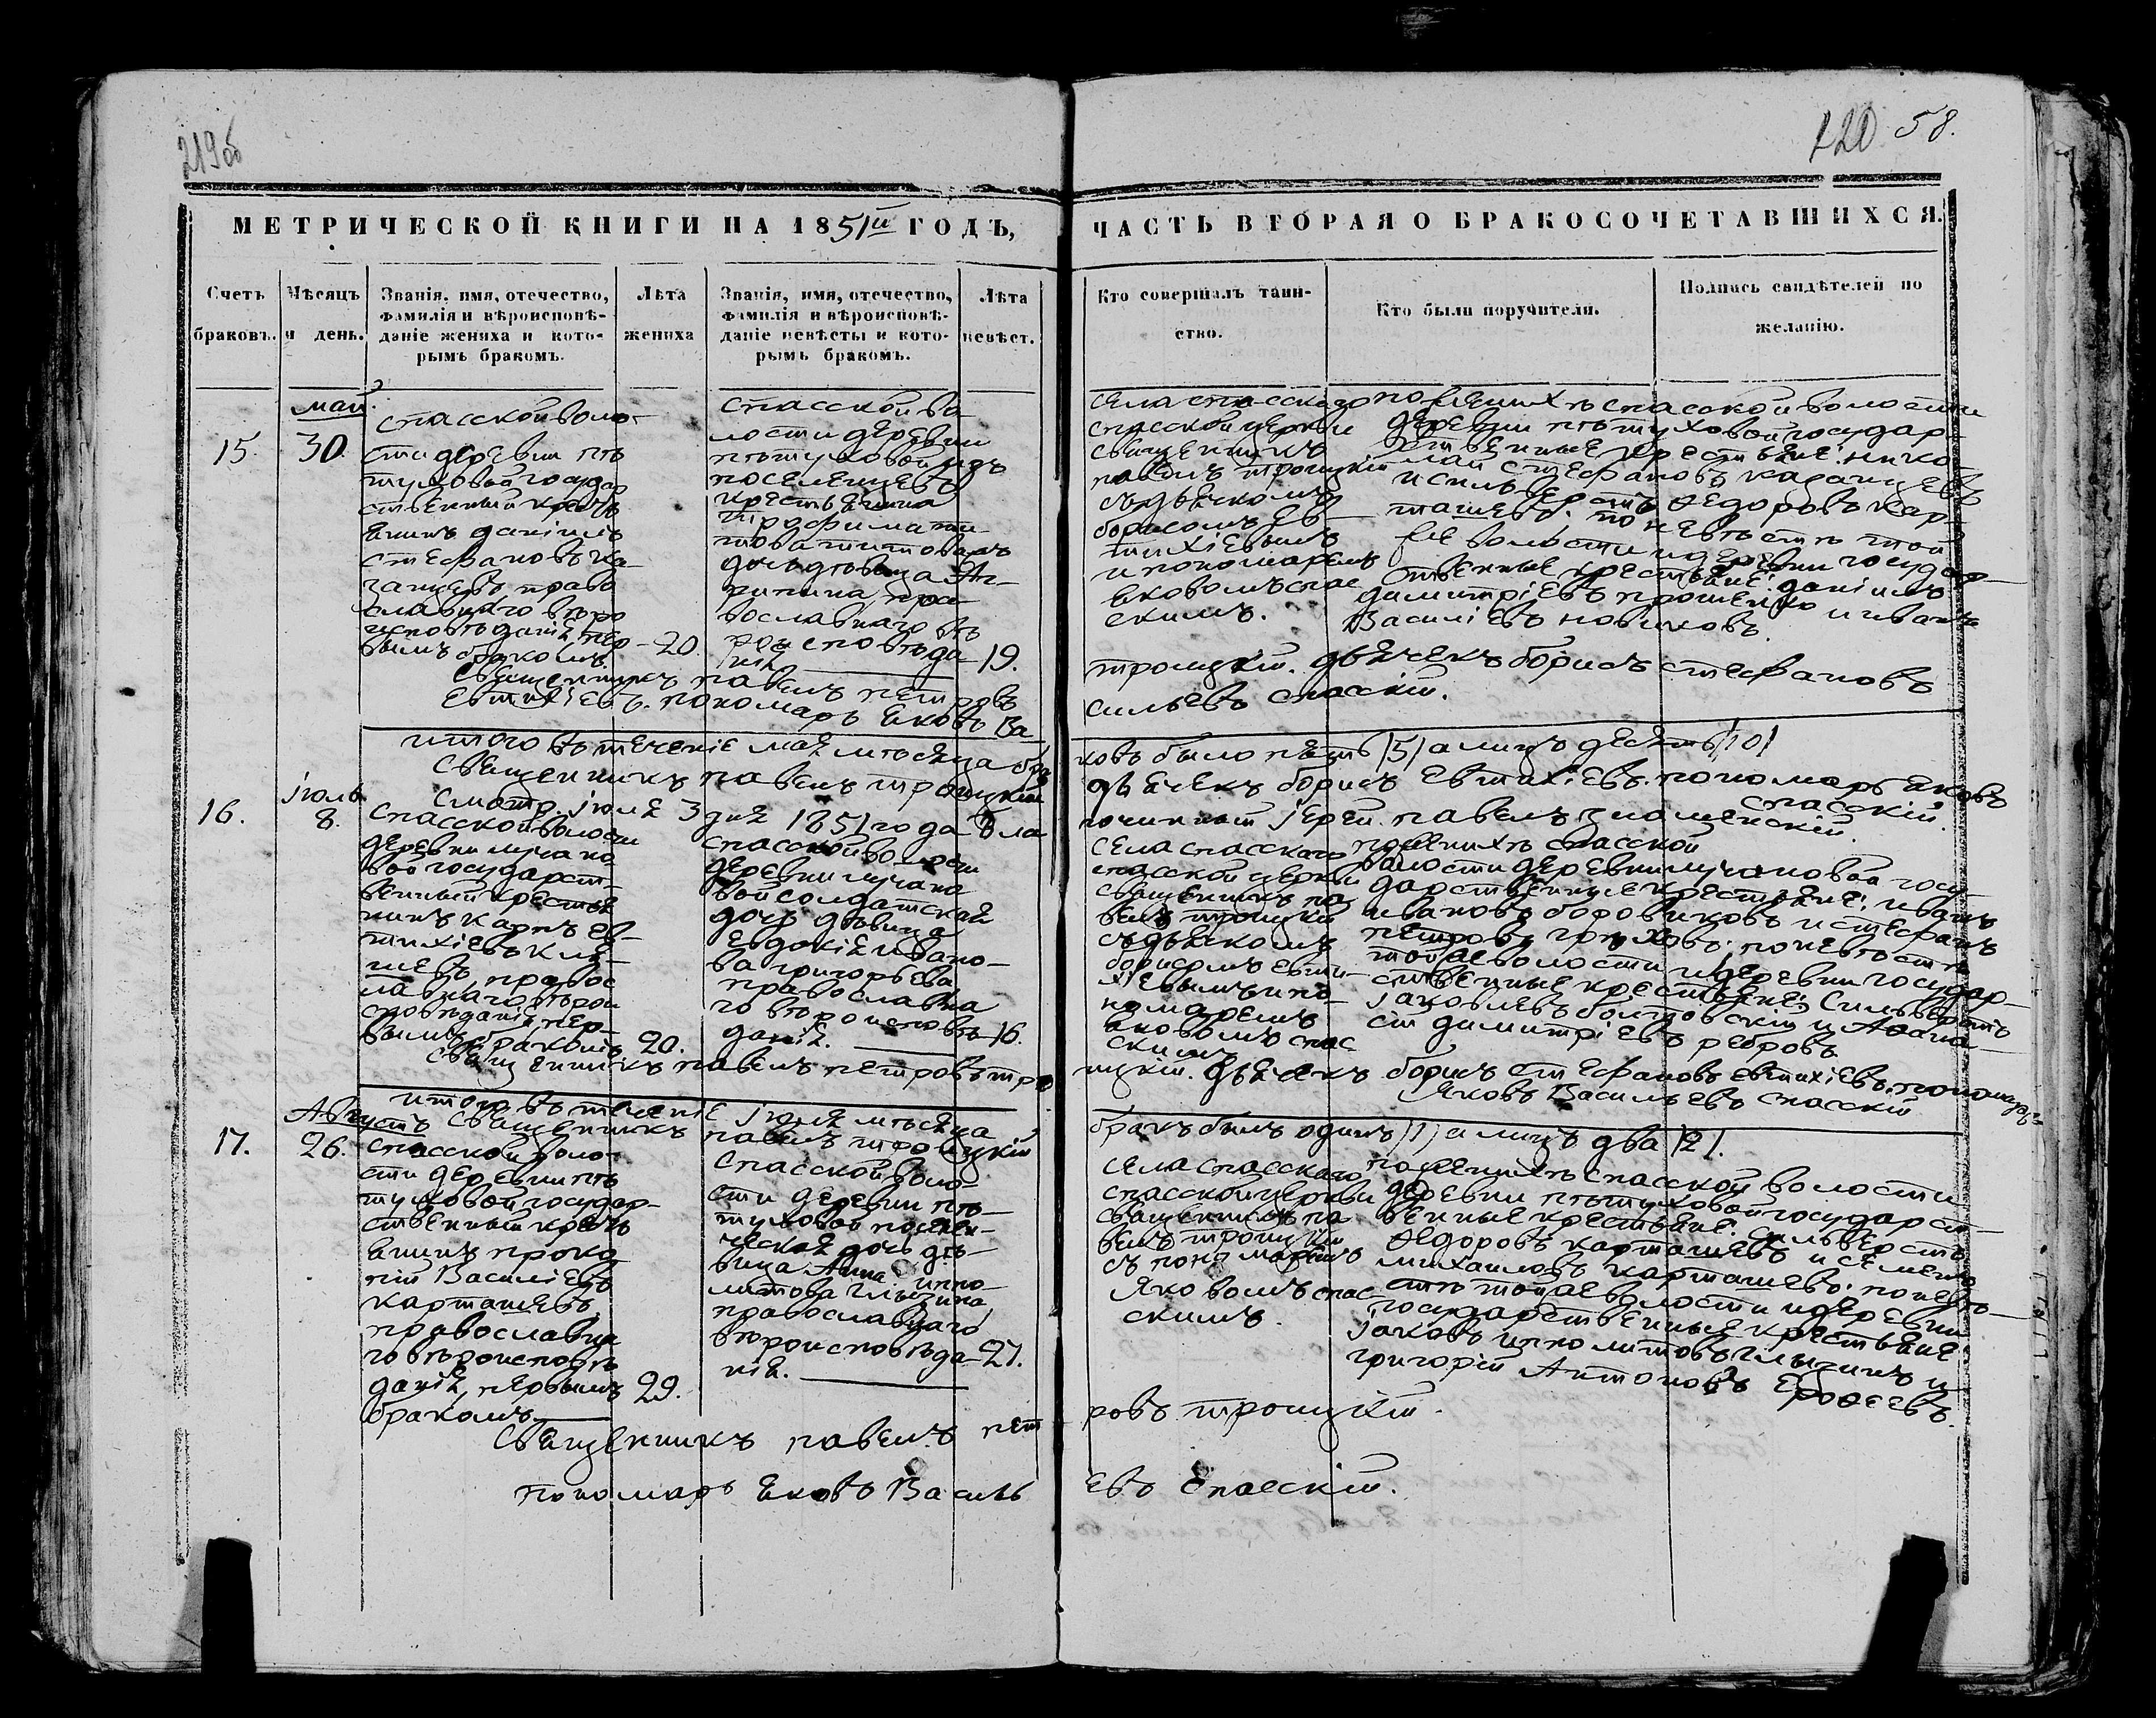 219об
220 58.
МЕТРИЧЕСКОЙ КНИГИ НА 1851й ГОДЪ,
ЧАСТЬ ВТОРАЯ О БРАКОСОЧЕТАВШИХСЯ.
Счетъ браковъ.
Мѣсяцъ и день.
Званія, имя, отечество,
фамилія и вѣроисповѣ-
даніе жениха и кото-
рымъ бракомъ.
Лѣта
жениха
Званія, имя, отечество,
фамилія и вѣроисповѣ-
даніе невѣсты и кото-
рымъ бракомъ.
Лѣта
невѣст.
Кто совершалъ таин-
ство.
Кто были поручители.
Подпись свидѣтелей по
желанію.
15.
май.
30.
спасской воло-
сти деревни пѣ
туховой государ
ственный кресть
янинъ даніилъ
стефановъ ка-
занцевъ, право
славнаго вѣро
исповѣданія, пер-
вымъ бракомъ.
20.
спасской во
лости деревни
пѣтуховой изъ
поселенцевъ
крестьянина
трофима ти-
това титова
дочь дѣвица Аг-
рипина, пра-
вославнаго вѣ
роисповѣда
нія.
19.
села спасскаго
спасской церкви
священникъ
павелъ троицкій
съ дьячкомъ
борисомъ ев-
тихіевымъ
и пономаремъ
яковомъ спас
скимъ.
по женихѣ спасской волости
деревни пѣтуховой государ-
ственные крестьяне: нико
лай стефановъ казанцевъ
и сильверстъ ѳедоровъ кар-
ташевъ: по невѣстѣ той
же волости и деревни государ-
ственные крестьяне: даніилъ
димитріевъ прошенко и иванъ
Василіевъ новиковъ.
Священникъ павелъ петровъ
троицкій. дьячекъ борисъ стефановъ
евтихіевъ. пономарь яковъ Ва
сильевъ спасскій.
итого въ теченіе мая мѣсяца бра
ковъ было пять /5/ а лицъ десять /10/
священникъ павелъ троицкій
дьячекъ борисъ евтихіевъ. пономарь яковъ
спасскій.
смотр. іюля 3 дня 1851 года Бла
гочинный іерей павелъ знаменскій.
16.
іюль
8.
спасской волости
деревни лучано
вой государст-
венный крестья
нинъ карпъ ев-
тихіевъ
правос
лавнаго вѣрои
сповѣданія, пер-
вымъ бракомъ
20.
спасской волости
деревни лучано
вой солдатская
дочь дѣвица
Евдокія ивано-
ва григорьева
православна
го вѣроисповѣ
данія.
16.
села спасскаго
спасской церкви
священникъ па
велъ троицкій
съ дьячкомъ
борисомъ евти-
хіевымъ и по-
номаремъ
яковомъ спас
скимъ.
по женихѣ спасской
волости деревни лучановой госу-
дарственные крестьяне: иванъ
ивановъ боровиковъ и стефанъ
петровъ: по невѣстѣ
той же волости и деревни государ-
ственные крестьяне; Сильверстъ
іаковлевъ болтовскій и Аѳана-
сій димитріевъ ребровъ.
священникъ павелъ петровъ тро
ицкій. дьячекъ борисъ стефановъ евтихіевъ. пономарь
Яковъ Васильевъ спасскій
итого въ теченіе іюля мѣсяца
бракъ былъ одинъ /1/ а лицъ два /2/.
священникъ павелъ троицкій
17.
Августъ
26.
спасской воло-
сти деревни пѣ
туховой государ-
ственный кресть
янинъ проко
пій Василіевъ
карташевъ,
православна
го вѣроисповѣ
данія, первымъ
бракомъ
29.
спасской воло-
сти деревни пѣ-
туховой поселен-
ческая дочь дѣ-
вица Анна иппо-
литова глызина,
православнаго
вѣроисповѣда-
нія.
21.
села спасскаго
спасской церкви
священникъ па
велъ троицкій
съ пономаремъ
Яковомъ спас-
скимъ.
по женихѣ спасской волости
деревни пѣтуховой государст-
венные крестьяне: сильверстъ
ѳедоровъ карташевъ и семенъ
михаиловъ карташевъ: по невѣ-
стѣ той же волости и деревни
государственные крестьяне:
іаковъ ипполитовъ глызинъ и
григорій Антоновъ Ероѳеевъ.
Священникъ павелъ пет
ровъ троицкій.
пономарь яковъ Василь
евъ спасскій.